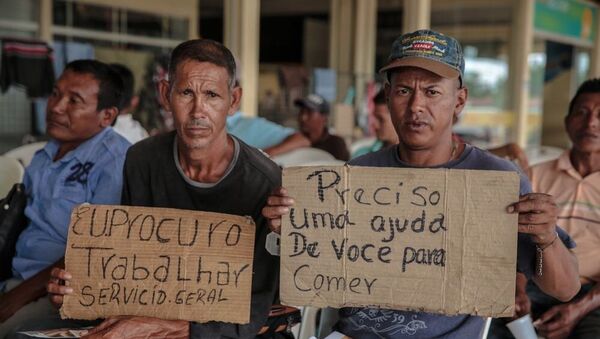 EU PROCURO
Trabalhar
SERVICIO.GERAL
Preciso
uma ajuda
De voce para
Comer
28
59